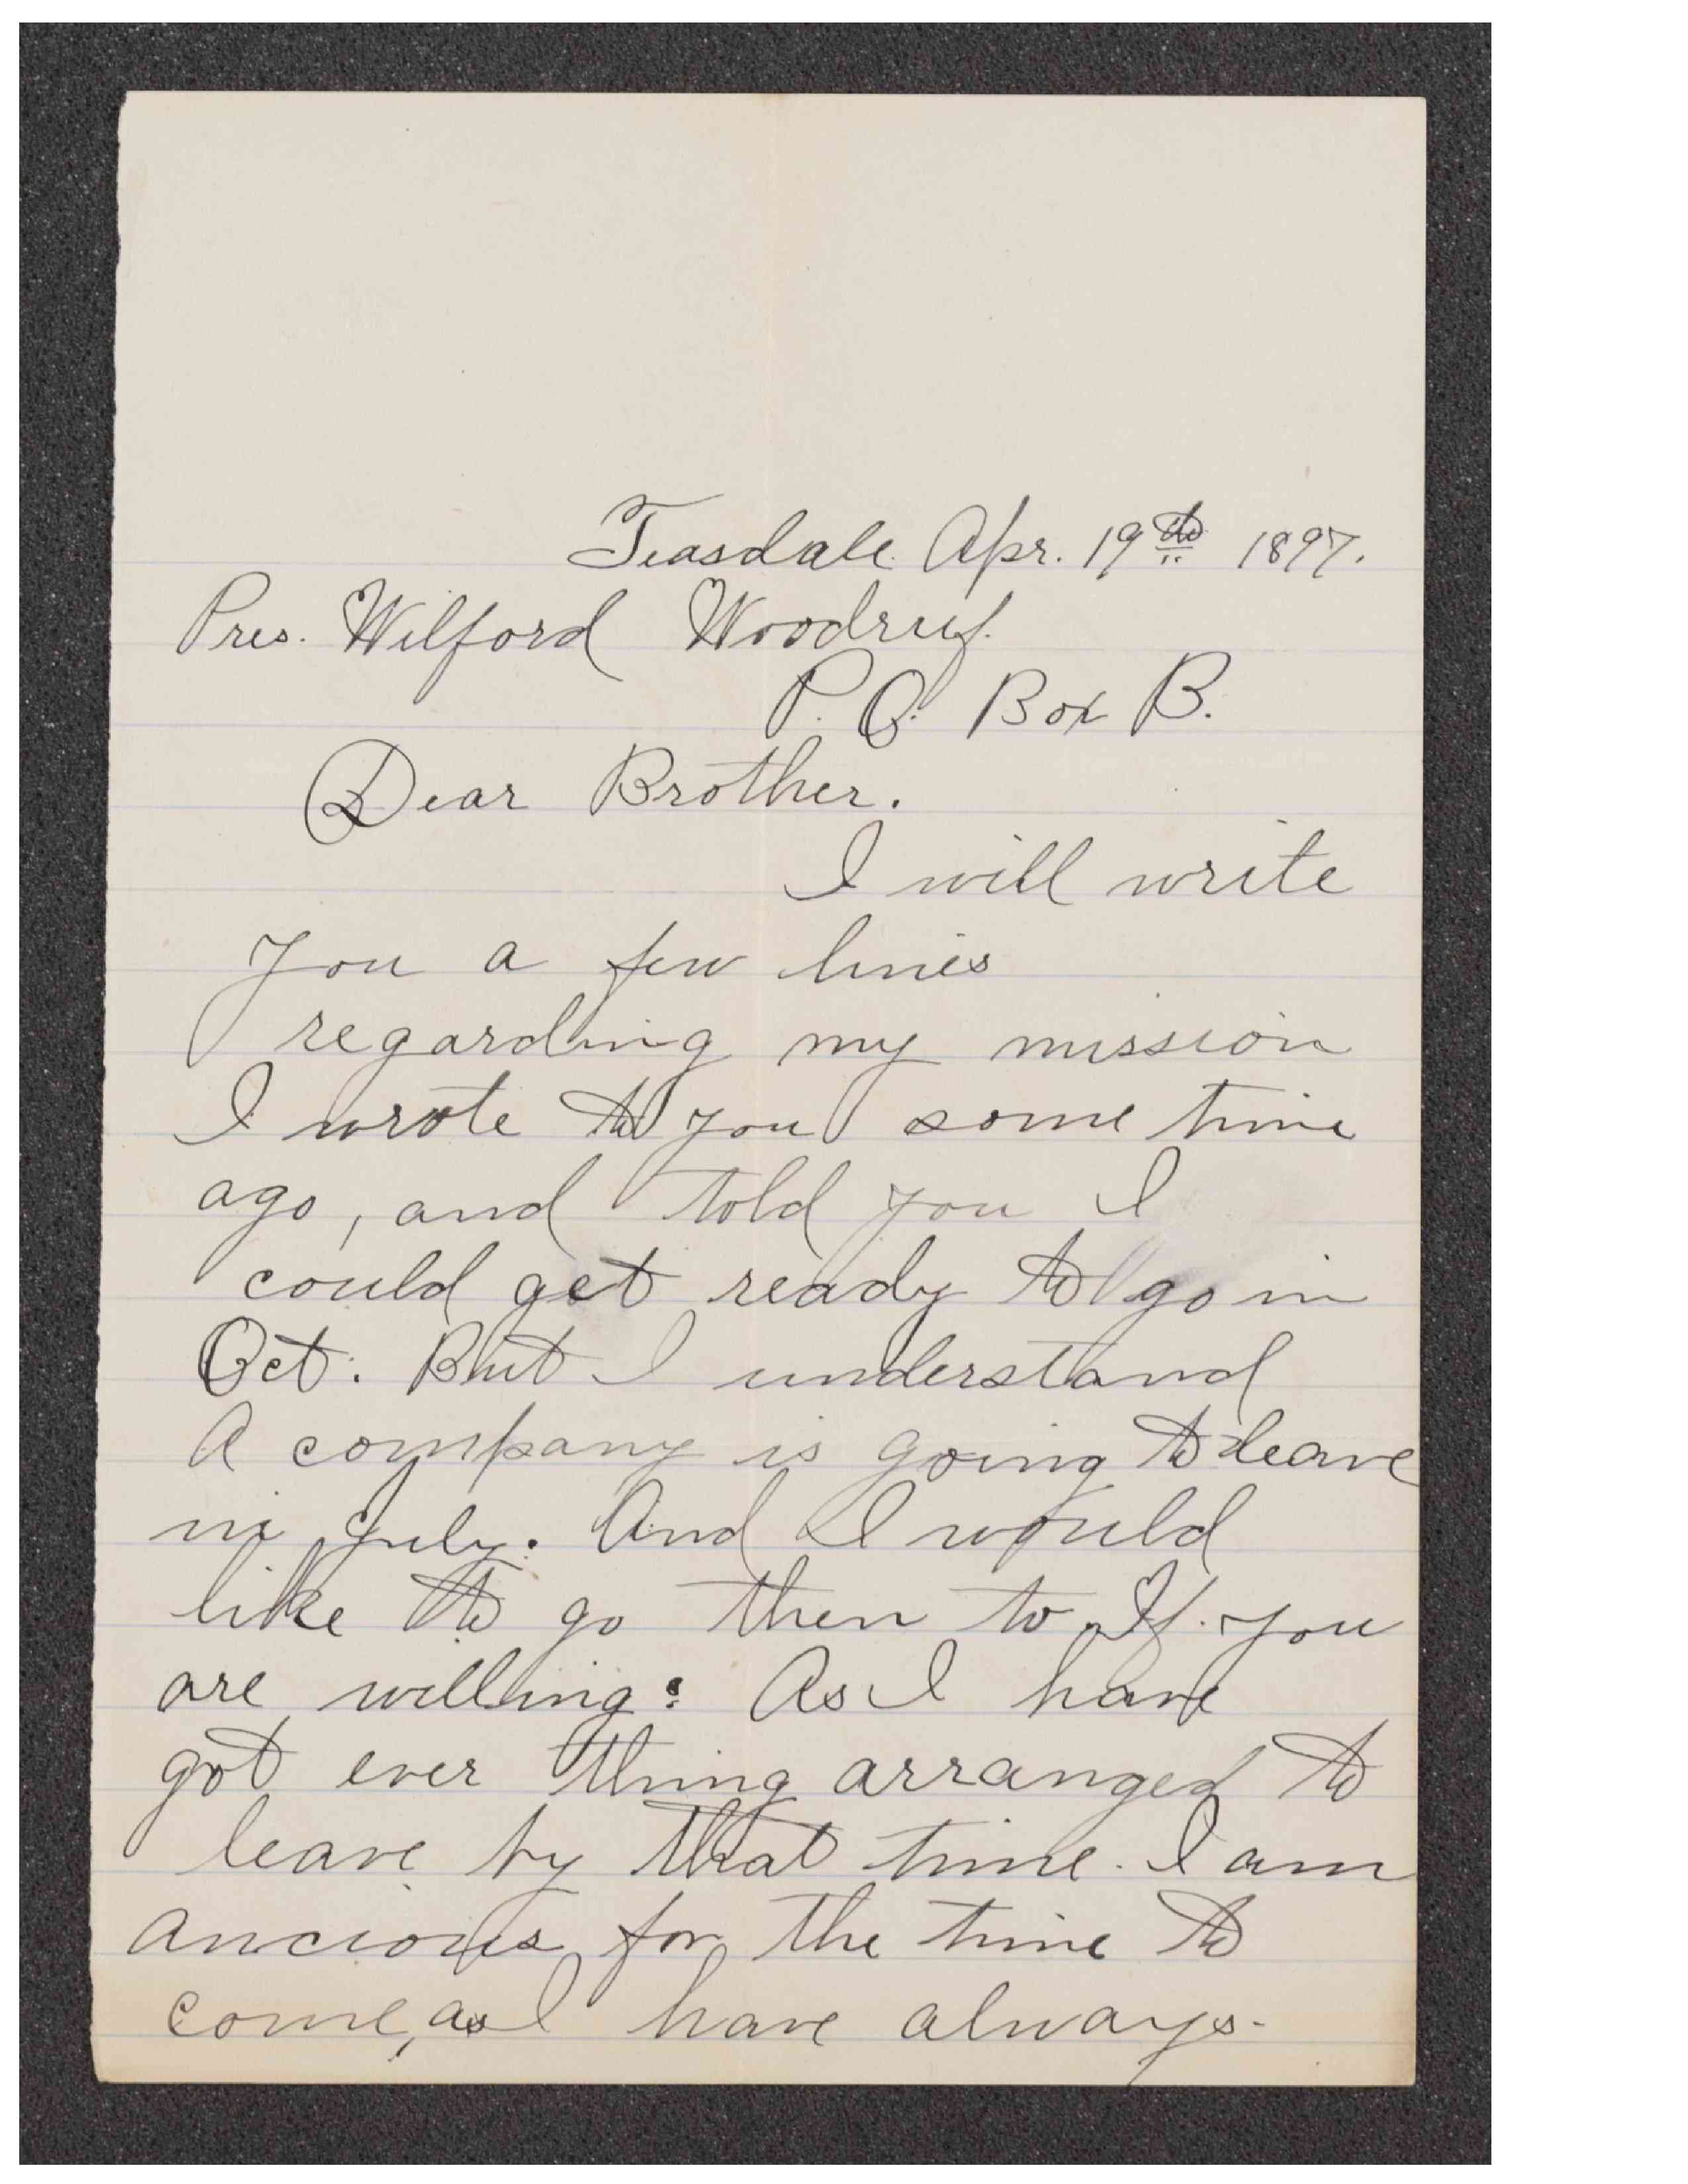 Teasdale Apr. 19th 1897.
Pres. Wilford Woodruf.
P.O. Box B.
Dear Brother.
I will write
you a few lines
regarding my mission
I wrote to you some time
ago, and told you I
could get ready to go in
Oct. But I understand
A company is going to leave
in July. And I would
like to go then to If you
are willing: As I have
got ever thing arranged to
leave by that time. I am
ancious for the time to
come, as I have always-